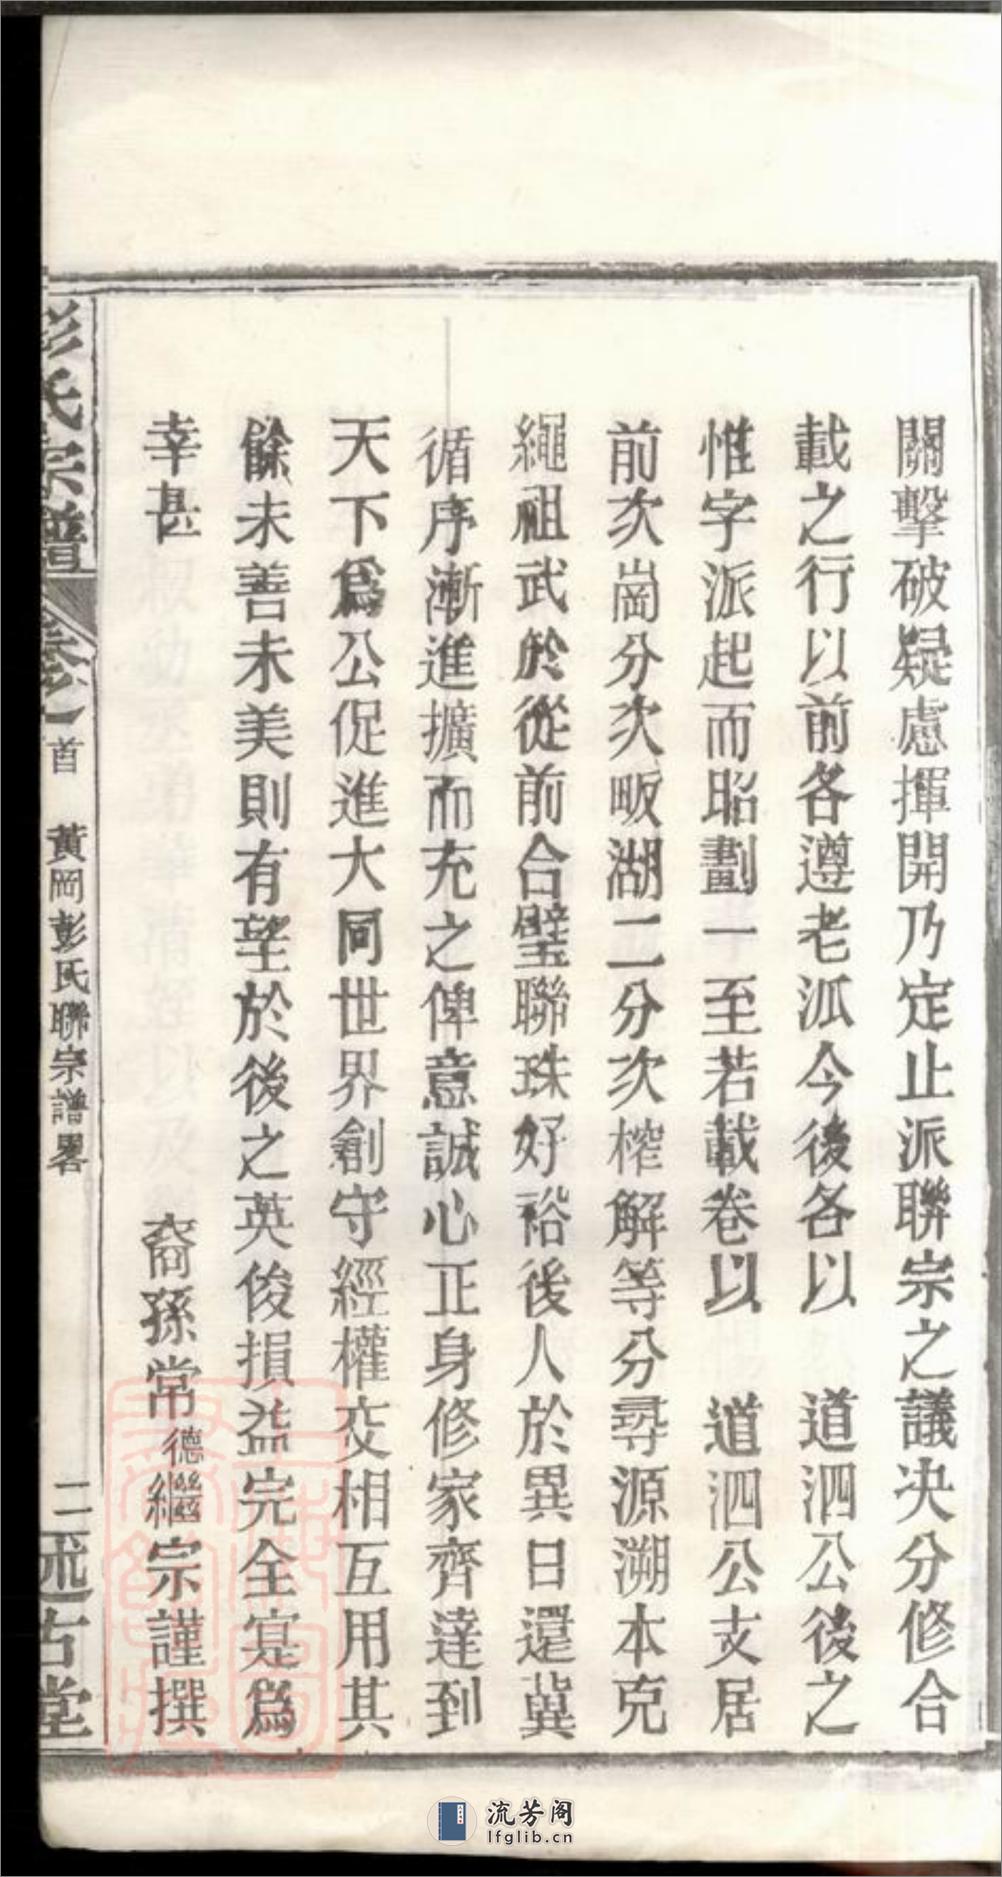 關擊破疑慮揮開乃定止派聯宗之議決分修合
載之行以前各遵老派今後各以　道泗公後之
惟字派起而昭劃一至若載卷以　道泗公支居
前次崗分次畈湖二分次榨解等分尋源溯本克
繩祖武於從前合璧聯珠好裕後人於異日還冀
循序漸進擴而充之俾意誠心正身修家齊達到
天下爲公促進大同世界創守經權交相互用其
餘未善未美則有望於後之英俊損益完全寔爲
幸甚
裔孫常德繼宗謹撰
彭氏宗譜
卷之一首　黃岡彭氏聯宗譜畧
二
述古堂
流芳阁
lfglib.cn